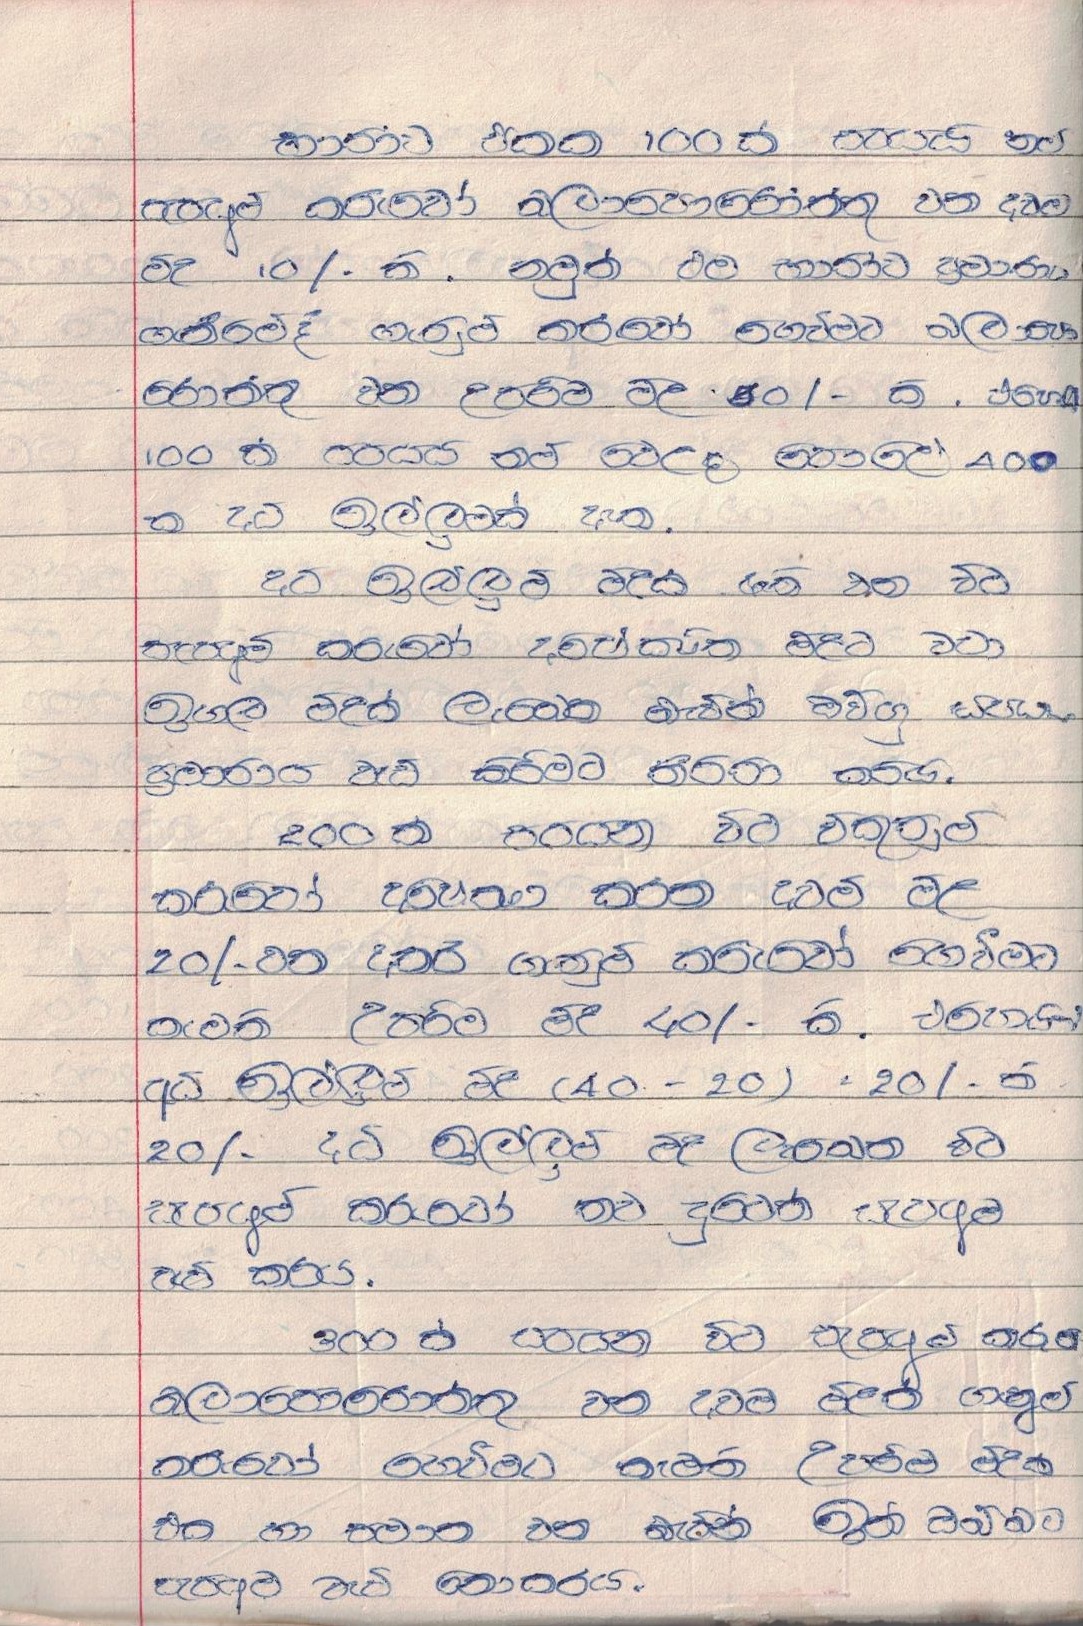 භාණ්ඩ ඒකක 100 ක් සපයයි නම්
සැපයුම් කරුවෝ බලාපොරොත්තු වන අවම
මිල 10/- කි. නමුත් එම භාණ්ඩ ප්‍රමාණය
ගැනීමේදී ගැනුම් කරුවෝ ගෙවීමට බලාපො
රොත්තු වන උපරිම මිල 50/- කි. එහෙයි
100 ක් සපයයි නම් වෙළඳ පොලේ 40
ක අධි ඉල්ලුමක් ඇත.
අධි ඉල්ලුම් මිලක් ඇති වන විට
සැපයුම් කරුවෝ අපේක්ෂිත මිලට වඩා
ඉහල මිලක් ලැබෙන බැවින් ඔවුහු සපයන
ප්‍රමාණය වැඩි කිරීමට තීරණ කරයි.
200 ක් සපයන විට විකුනුම්
කරුවෝ අපේක්ෂා කරන අවම මිල
20/- වන අතර ගැනුම් කරුවෝ ගෙවීමට
කැමති උපරිම මිල 40/- කි. එබැවින්
අධි ඉල්ලුම් මිල (40 - 20) = 20/- කි
20/- අධි ඉල්ලුම් මිල ලැබෙන විට
සැපයුම් කරුවෝ තව දුරටත් සැපයුම
වැඩි කරයි.
300 ක් සපයන විට සැපයුම් කරු
බලාපොරොත්තු වන අවම මිලත් ගැනුම්
කරුවෝ ගෙවීමට කැමති උපරිම මිලත්
එක හා සමාන වන බැවින් ඉන් ඔබ්බට
සැපයුම වැඩි නොකරයි.